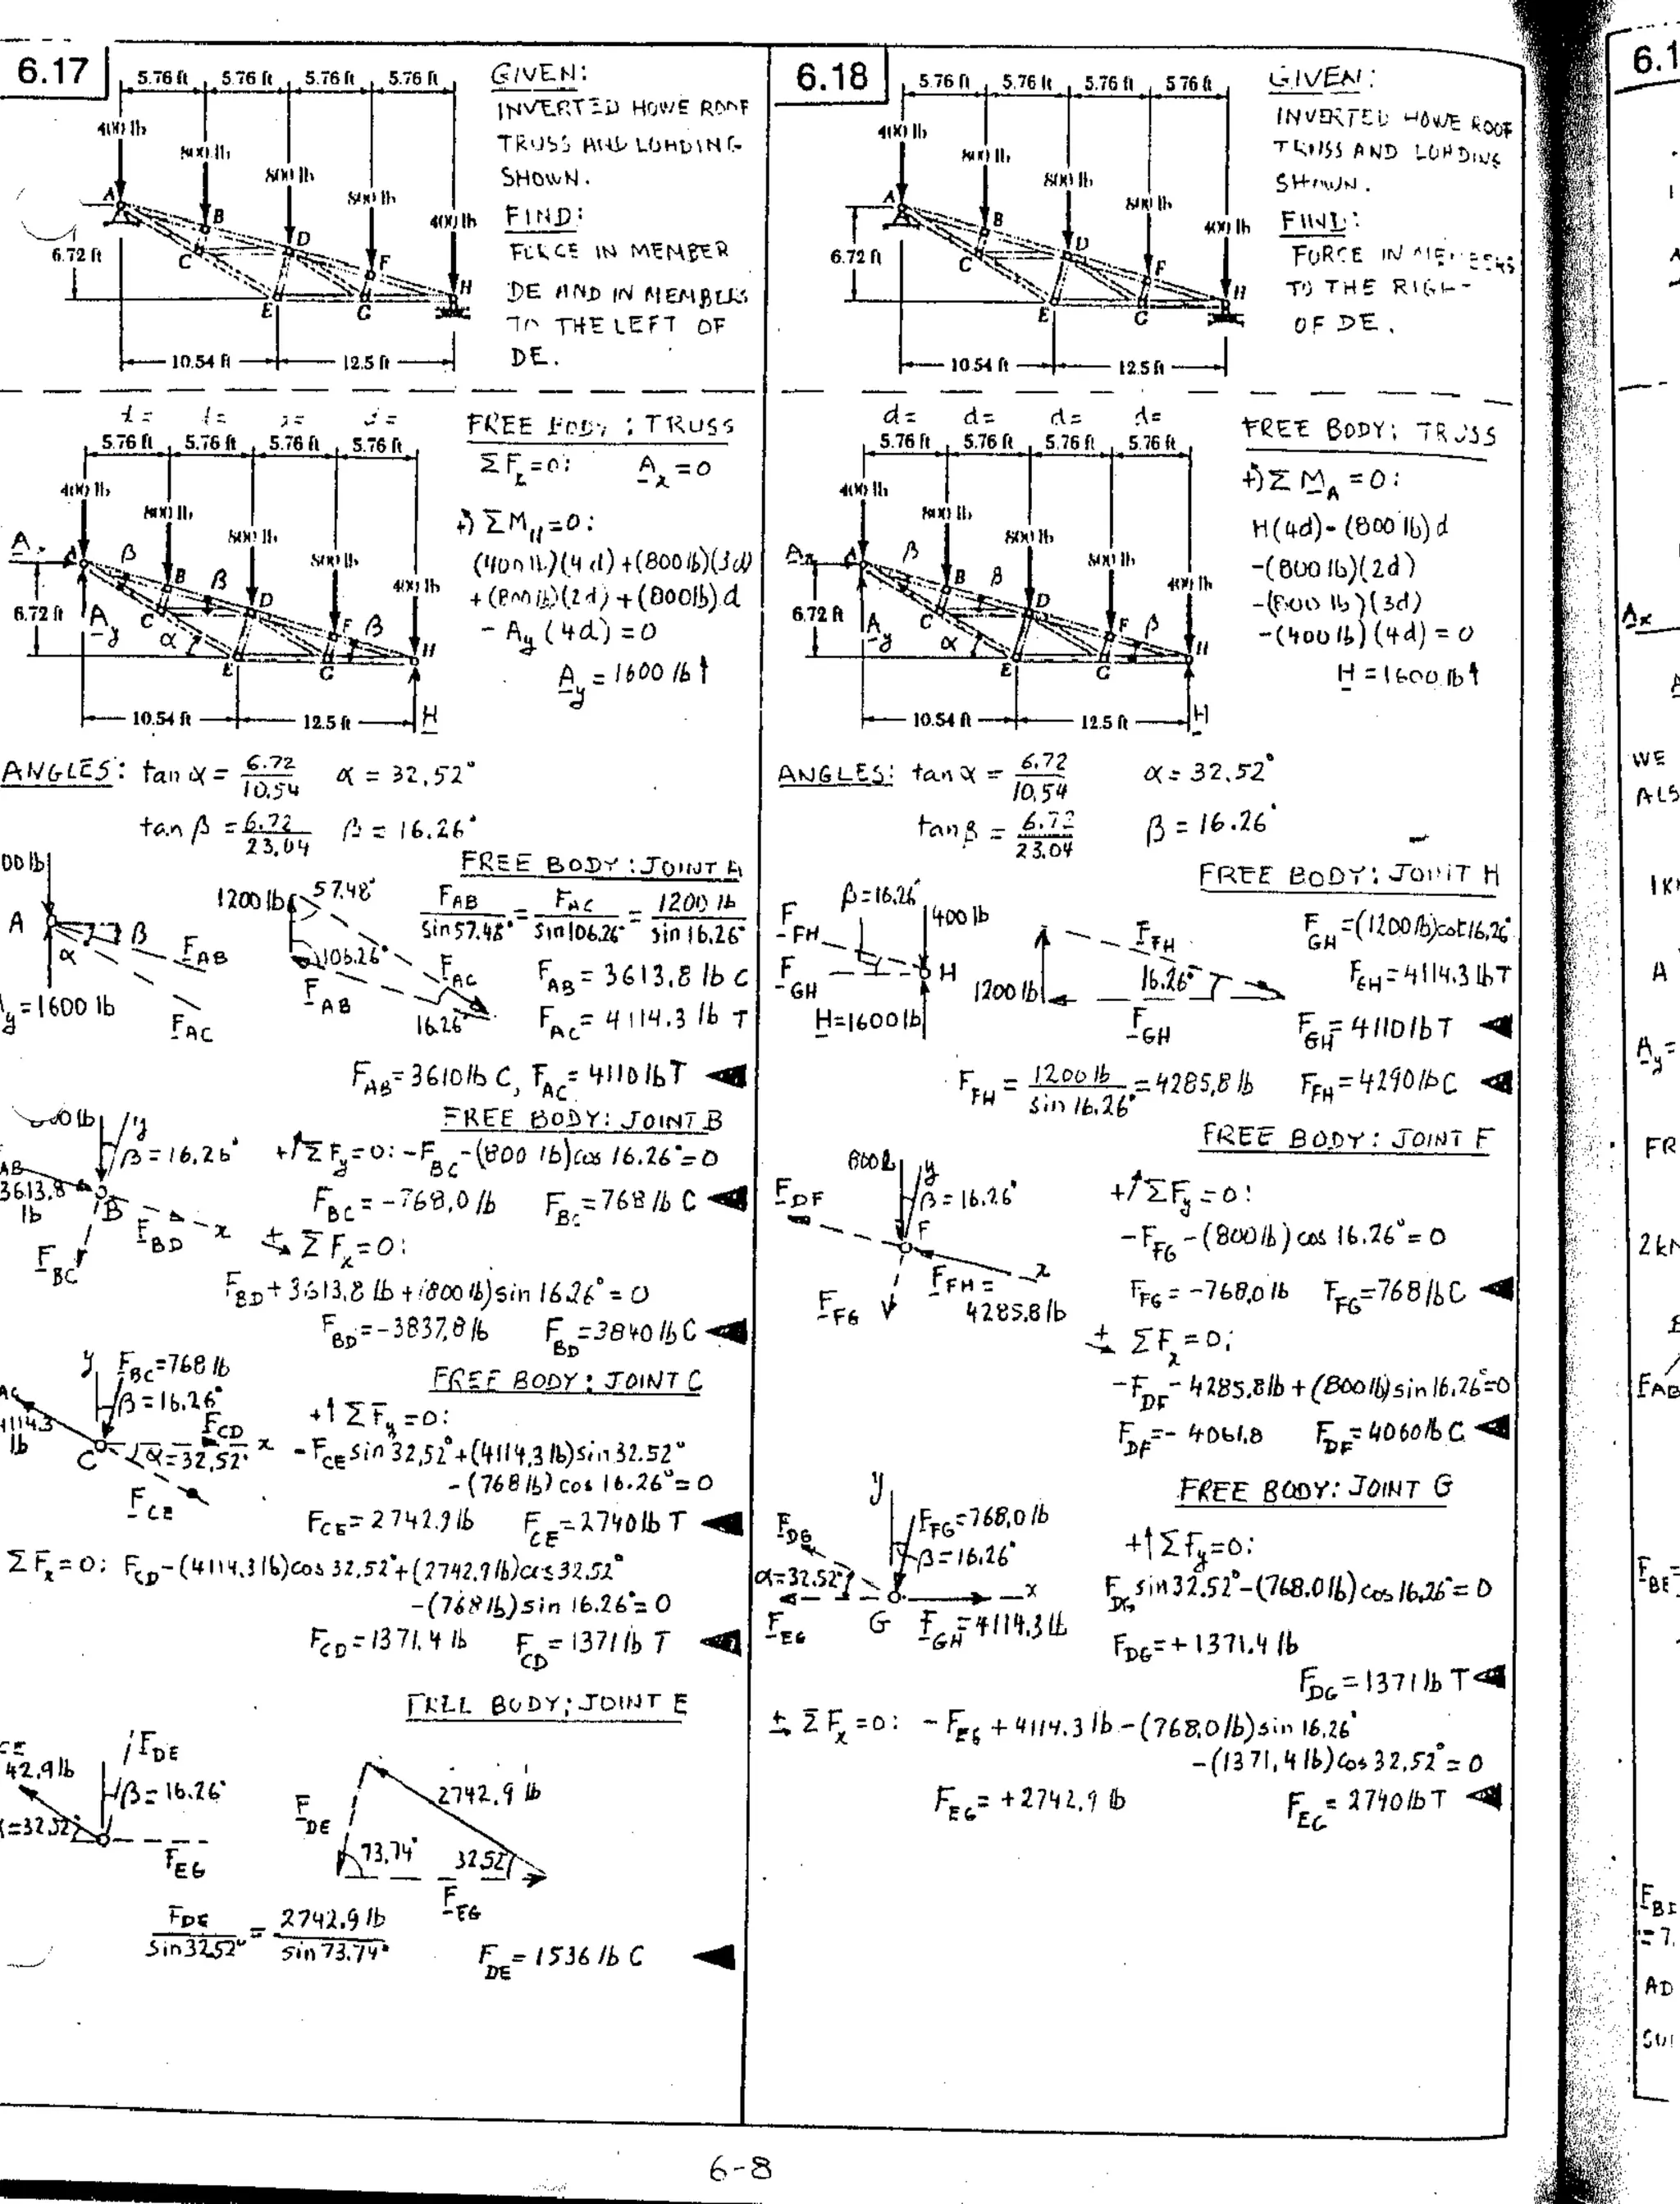 6.17
5.76 ft 5.76 ft 5.76 ft 5.76 ft
400 lb
800 lb
800 lb
800 lb
400 lb
A
B
D
F
H
C
E
G
6.72 ft
10.54 ft 12.5 ft
GIVEN:
INVERTED HOWE ROOF
TRUSS AND LOADING
SHOWN.
FIND:
FORCE IN MEMBER
DE AND IN MEMBERS
TO THE LEFT OF
DE.
5.76 ft 5.76 ft 5.76 ft 5.76 ft
400 lb
800 lb
800 lb
800 lb
400 lb
A
β
B
β
D
F
β
H
A_y
C
α
E
G
6.72 ft
10.54 ft 12.5 ft
H
FREE BODY: TRUSS
ΣF_x=0: A_x=0
+) ΣM_H=0:
(400 lb)(4d)+(800 lb)(3d)
+(800 lb)(2d)+(800 lb)d
-A_y(4d)=0
A_y=1600 lb↑
ANGLES: tan α = 6.72/10.54 α = 32.52°
tan β = 6.72/23.04 β = 16.26°
FREE BODY: JOINT A
00 lb
A
α
β
F_AB
F_AC
y=1600 lb
1200 lb
57.48°
106.26°
F_AC
F_AB
16.26°
F_AB/sin57.48° = F_AC/sin106.26° = 1200 lb/sin 16.26°
F_AB = 3613.8 lb C
F_AC = 4114.3 lb T
F_AB=3610 lb C, F_AC=4110 lb T
FREE BODY: JOINT B
00 lb
y
β=16.26°
AB
3613.8
lb
B
F_BD
x
F_BC
+↑ΣF_y=0: -F_BC-(800 lb)cos 16.26°=0
F_BC=-768.0 lb F_BC=768 lb C
+ ΣF_x=0:
F_BD+3613.8 lb+(800 lb)sin 16.26°=0
F_BD=-3837.8 lb F_BD=3840 lb C
FREE BODY: JOINT C
y
F_BC=768 lb
β=16.26°
AC
4114.3
lb
F_CD
x
C
α=32.52°
F_CE
+↑ΣF_y=0:
-F_CE sin 32.52°+(4114.3 lb)sin 32.52°
-(768 lb)cos 16.26°=0
F_CE=2742.9 lb F_CE=2740 lb T
ΣF_x=0: F_CD-(4114.3 lb)cos 32.52°+(2742.9 lb)cos 32.52°
-(768 lb)sin 16.26°=0
F_CD=1371.4 lb F_CD=1371 lb T
FREE BODY: JOINT E
CE
42.9 lb
F_DE
β=16.26°
α=32.52°
F_EG
F_DE
2742.9 lb
73.74°
32.52°
F_EG
F_DE/sin32.52° = 2742.9 lb/sin 73.74°
F_DE=1536 lb C
6.18
5.76 ft 5.76 ft 5.76 ft 5 76 ft
400 lb
800 lb
800 lb
800 lb
400 lb
A
B
D
F
H
C
E
G
6.72 ft
10 54 ft 12.5 ft
GIVEN:
INVERTED HOWE ROOF
TRUSS AND LOADING
SHOWN.
FIND:
FORCE IN MEMBERS
TO THE RIGHT
OF DE.
d= d= d= d=
5.76 ft 5.76 ft 5.76 ft 5.76 ft
400 lb
800 lb
800 lb
800 lb
400 lb
A_x
A
β
B
β
D
F
β
H
A_y
C
α
E
G
6.72 ft
10.54 ft 12.5 ft
H
FREE BODY: TRUSS
+)ΣM_A=0:
H(4d)-(800 lb)d
-(800 lb)(2d)
-(800 lb)(3d)
-(400 lb)(4d)=0
H=1600 lb↑
ANGLES: tan α = 6.72/10.54 α=32.52°
tan β = 6.72/23.04 β=16.26°
FREE BODY: JOINT H
β=16.26°
F_FH
400 lb
F_GH
H
H=1600 lb
F_FH
16.26°
1200 lb
F_GH
F_GH=(1200 lb)cot16.26°
F_GH=4114.3 lb T
F_GH=4110 lb T
F_FH = 1200 lb/sin 16.26° = 4285.8 lb F_FH=4290 lb C
FREE BODY: JOINT F
800 lb
y
β=16.26°
F_DF
F
x
F_FH=
4285.8 lb
F_FG
+↑ΣF_y=0:
-F_FG-(800 lb)cos 16.26°=0
F_FG=-768.0 lb F_FG=768 lb C
+ ΣF_x=0:
-F_DF-4285.8 lb+(800 lb)sin 16.26°=0
F_DF=-4061.8 F_DF=4060 lb C
FREE BODY: JOINT G
y
F_FG=768.0 lb
β=16.26°
F_DG
α=32.52°
x
F_EG
G
F_GH=4114.3 lb
+↑ΣF_y=0:
F_DG sin 32.52°-(768.0 lb)cos 16.26°=0
F_DG=+1371.4 lb
F_DG=1371 lb T
+ ΣF_x=0: -F_EG+4114.3 lb-(768.0 lb)sin 16.26°
-(1371.4 lb)cos 32.52°=0
F_EG=+2742.9 lb F_EG=2740 lb T
6-8
6.1
A_x
WE
ALS
1K
A
A_y=
FR
2kN
F_AB
F_BE=
=7.
AD